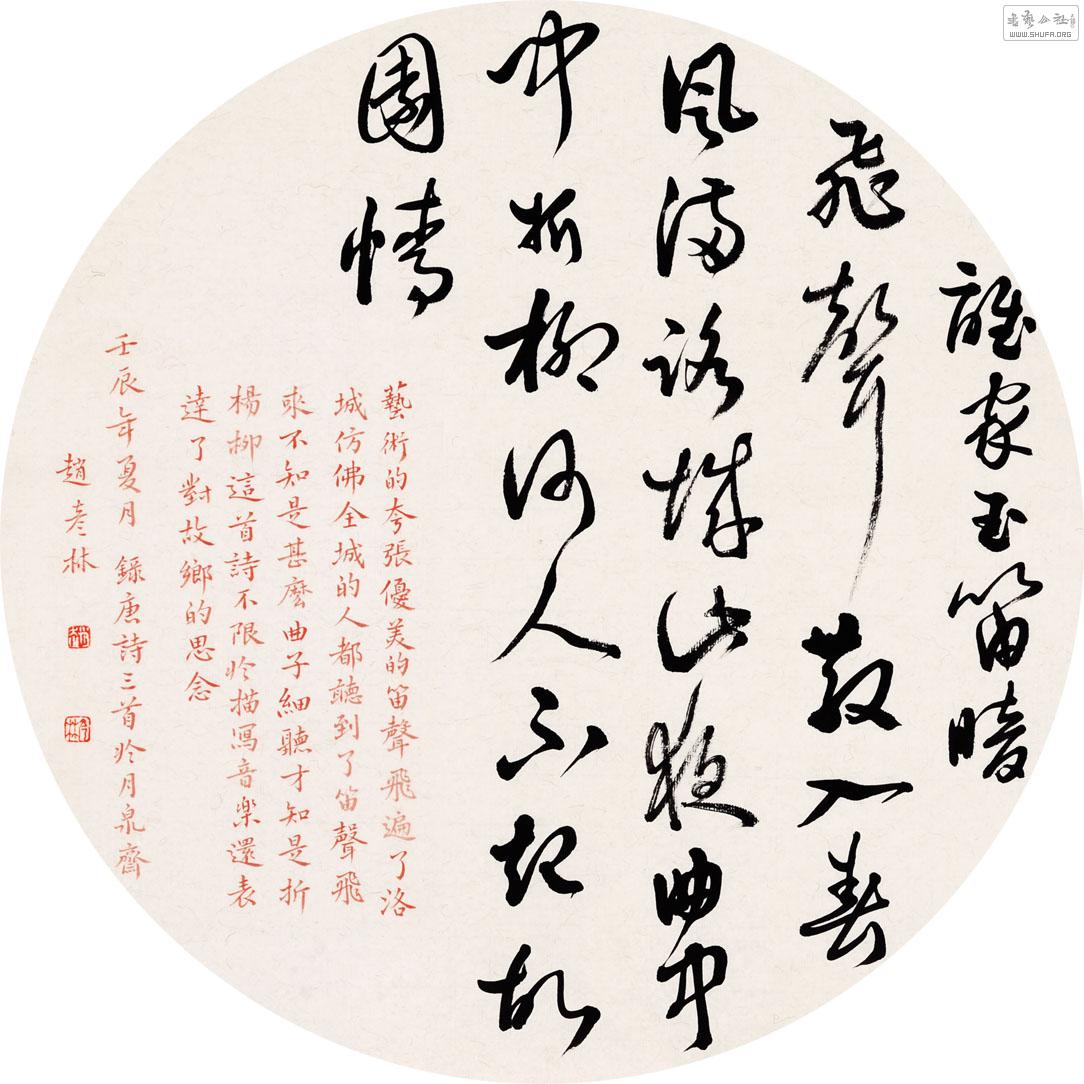 誰家玉笛暗
飛聲散入春
風滿洛城此夜曲中
聞折柳何人不起故
園情
藝術的夸張優美的笛聲飛遍了洛
城仿佛全城的人都聽到了笛聲飛
來不知是甚麼曲子細聽才知是折
楊柳這首詩不限於描寫音樂還表
達了對故鄉的思念
壬辰年夏月 錄唐詩三首於月泉齋
趙彥林
書藝公社
WWW.SHUFA.ORG